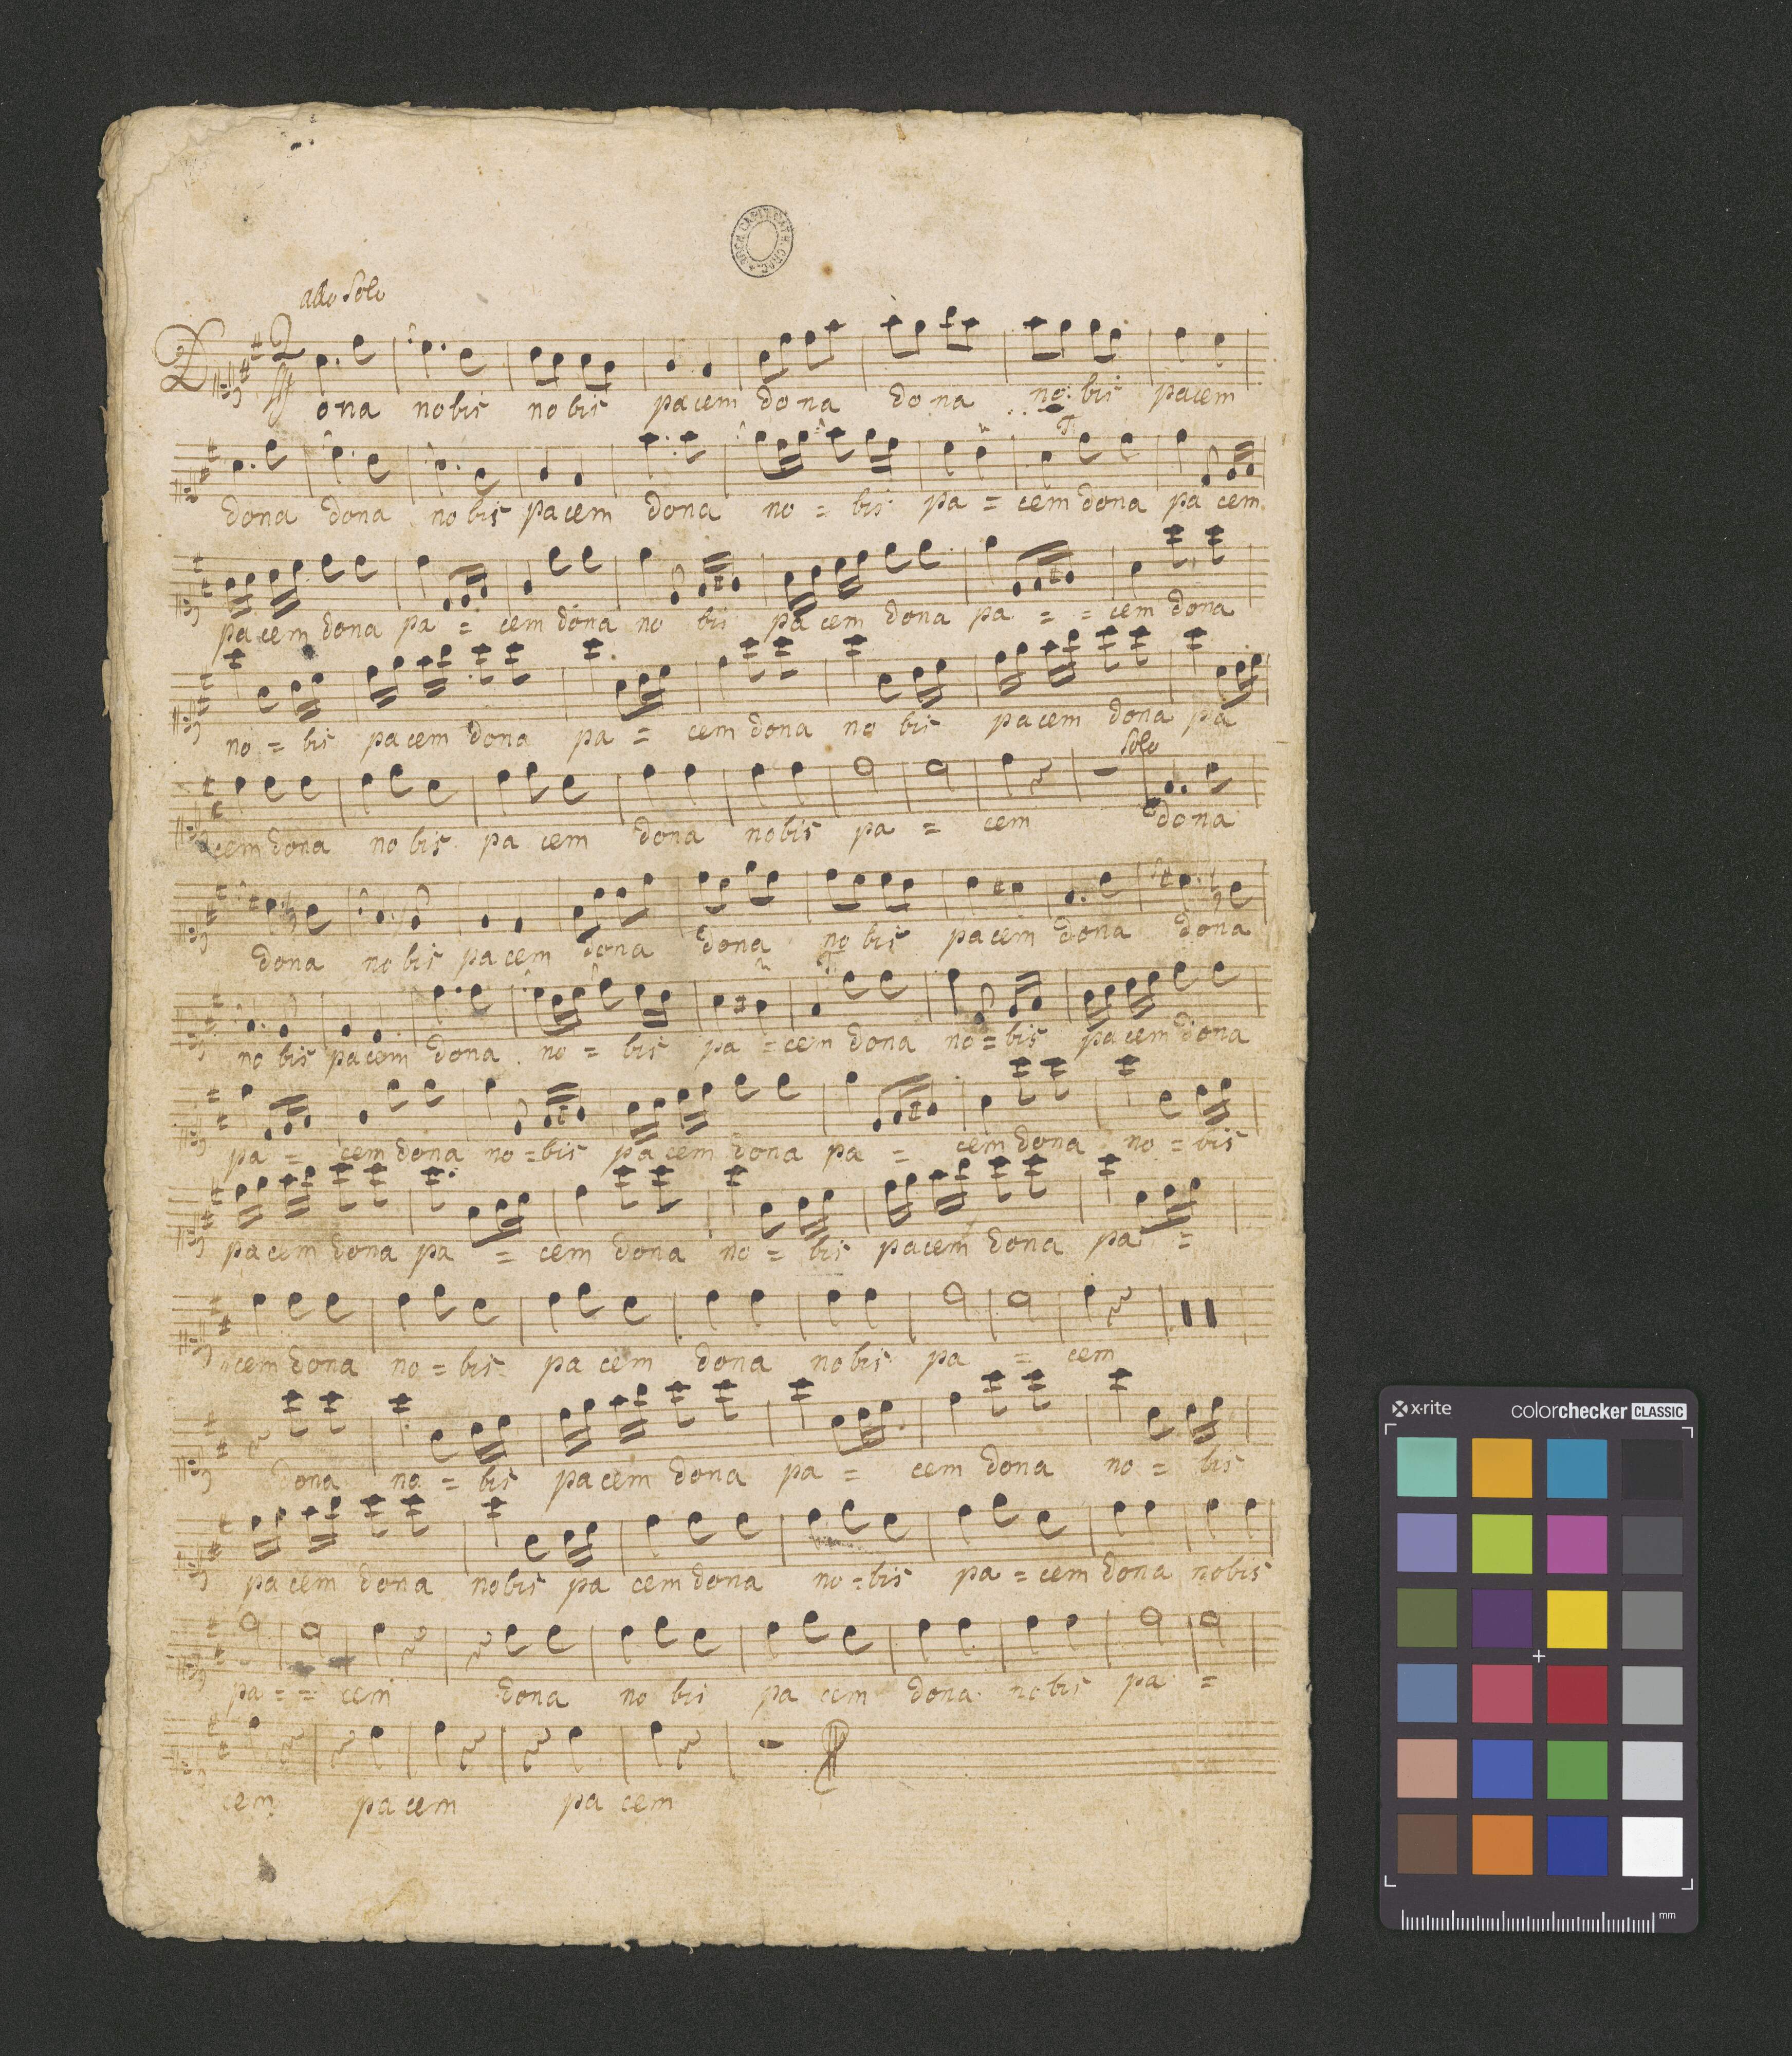 ARCH. CAPIT. CATH. CRAC.
allo Solo
Dona nobis nobis pacem dona dona no bis pacem
dona dona nobis pacem dona no = bis pa = cem dona pa cem
pacem dona pa = cem dona no bis pacem dona pa = = cem dona
no = bis pacem dona pa = cem dona no bis pacem dona pa
Solo
cem dona nobis pa cem dona nobis pa = cem dona
dona nobis pacem dona dona no bis pacem dona dona
no bis pacem dona no = bis pa = cem dona no = bis pacem dona
pa = cem dona no = bis pacem dona pa = cem dona no = bis
pacem dona pa = cem dona no = bis pacem dona pa =
cem dona no = bis pa cem dona nobis pa = cem
dona no = bis pacem dona pa = cem dona no = bis
pacem dona nobis pa cem dona no = bis pa = cem dona nobis
pa = = cem dona no bis pa cem dona nobis pa =
cem pacem pa cem
x·rite colorchecker CLASSIC
mm